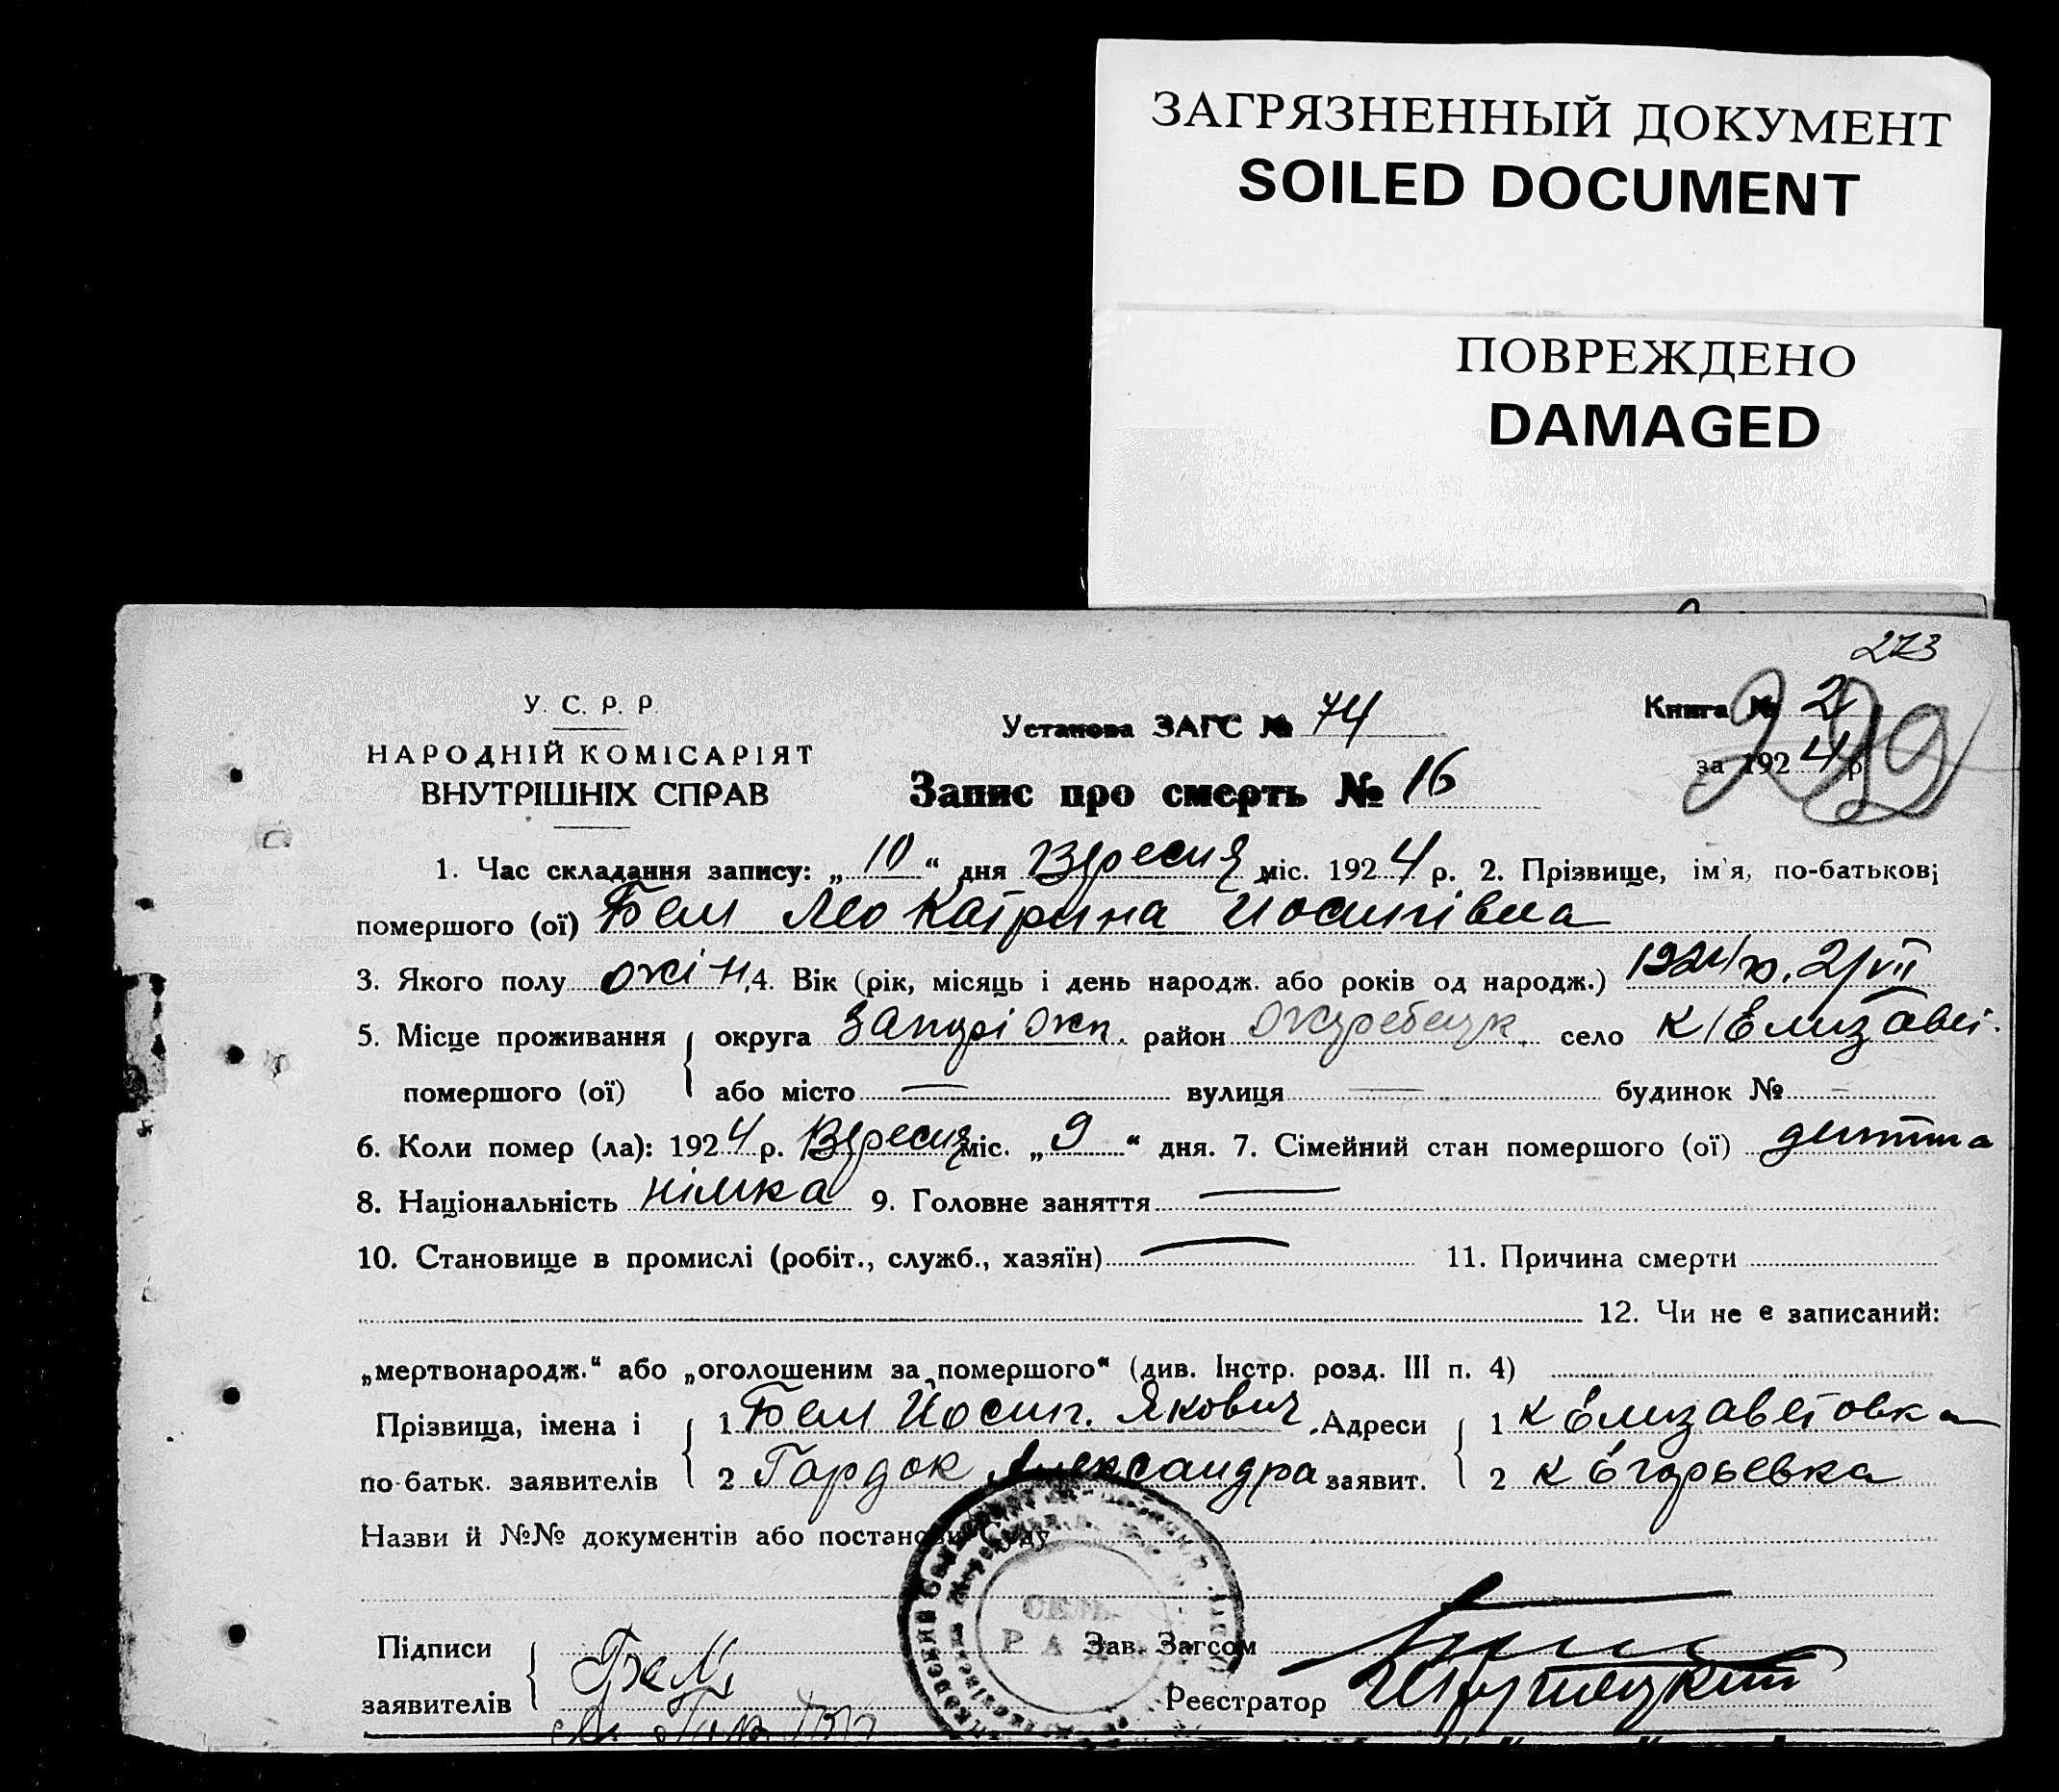 ЗАГРЯЗНЕННЫЙ ДОКУМЕНТ
SOILED DOCUMENT
ПОВРЕЖДЕНО
DAMAGED
273
299
У. С. Р. Р.
НАРОДНІЙ КОМІСАРІЯТ
ВНУТРІШНІХ СПРАВ
Установа ЗАГС № 74
Книга № 2
за 1924 р
Запис про смерть № 16
1. Час складання запису: „10“ дня Вересня міс. 1924 р. 2. Прізвище, ім'я, по-батькові
помершого (ої) Бем Лео Катрина Иосипівна
3. Якого полу жін. 4. Вік (рік, місяць і день народж. або років од народж.) 1924 р. 2/VII
5. Місце проживання помершого (ої) { округа район село К/Елизавет.
або місто — вулиця — будинок № —
6. Коли помер (ла): 1924 р. Вересня міс. „9“ дня. 7. Сімейний стан помершого (ої) дитина
8. Національність німка 9. Головне заняття —
10. Становище в промислі (робіт., служб., хазяїн) — 11. Причина смерти
12. Чи не є записаний:
„мертвонародж.“ або „оголошеним за помершого“ (див. Інстр. розд. III п. 4)
Прізвища, імена і по-батьк. заявителів { 1 Бем Йосип. Якович. Адреси заявит. { 1 к Елизаветовка
2 Гардок Александра 2 к Егорьевка
Назви й №№ документів або постанови Суду
Підписи заявителів { Зав. Загсом
Реєстратор